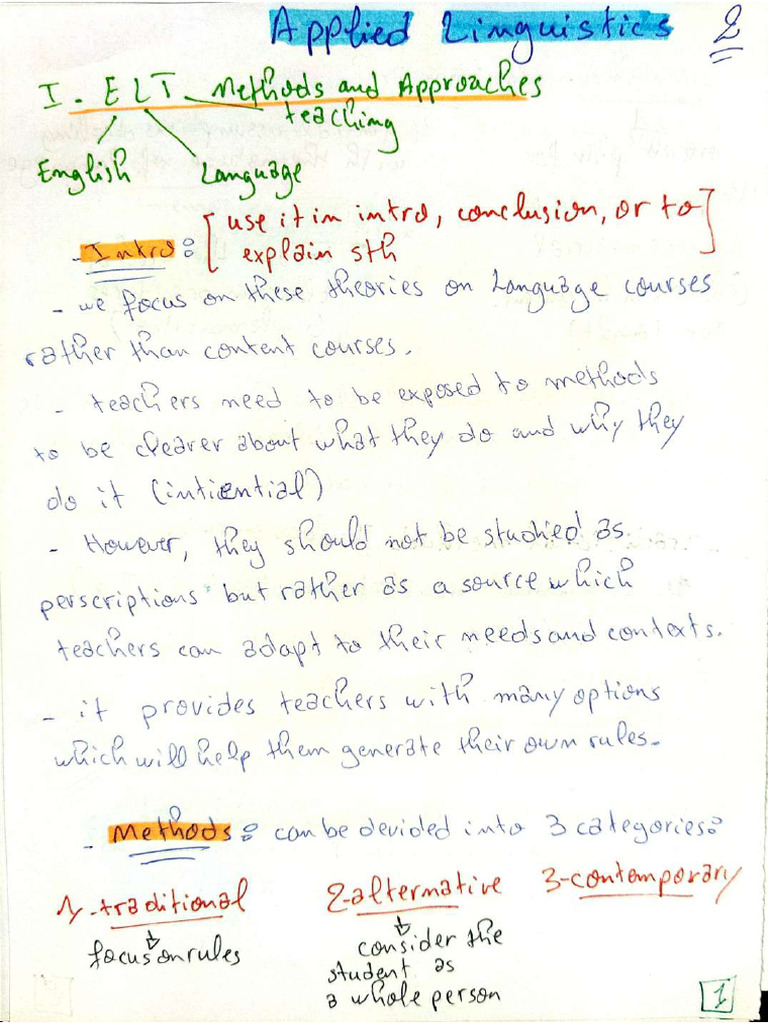 Applied Linguistics 2
I- ELT Methods and Approaches
teaching
English Language
- Intro: [use it in intro, conclusion, or to
explain sth]
- we focus on these theories on Language courses
rather than content courses.
- teachers need to be exposed to methods
to be clearer about what they do and why they
do it (intiential)
- However, they should not be studied as
perscriptions but rather as a source which
teachers can adapt to their needs and contexts.
- it provides teachers with many options
which will help them generate their own rules.
- Methods: can be devided into 3 categories:
1-traditional 2-alternative 3-contemporary
focus on rules
consider the
student as
a whole person
1